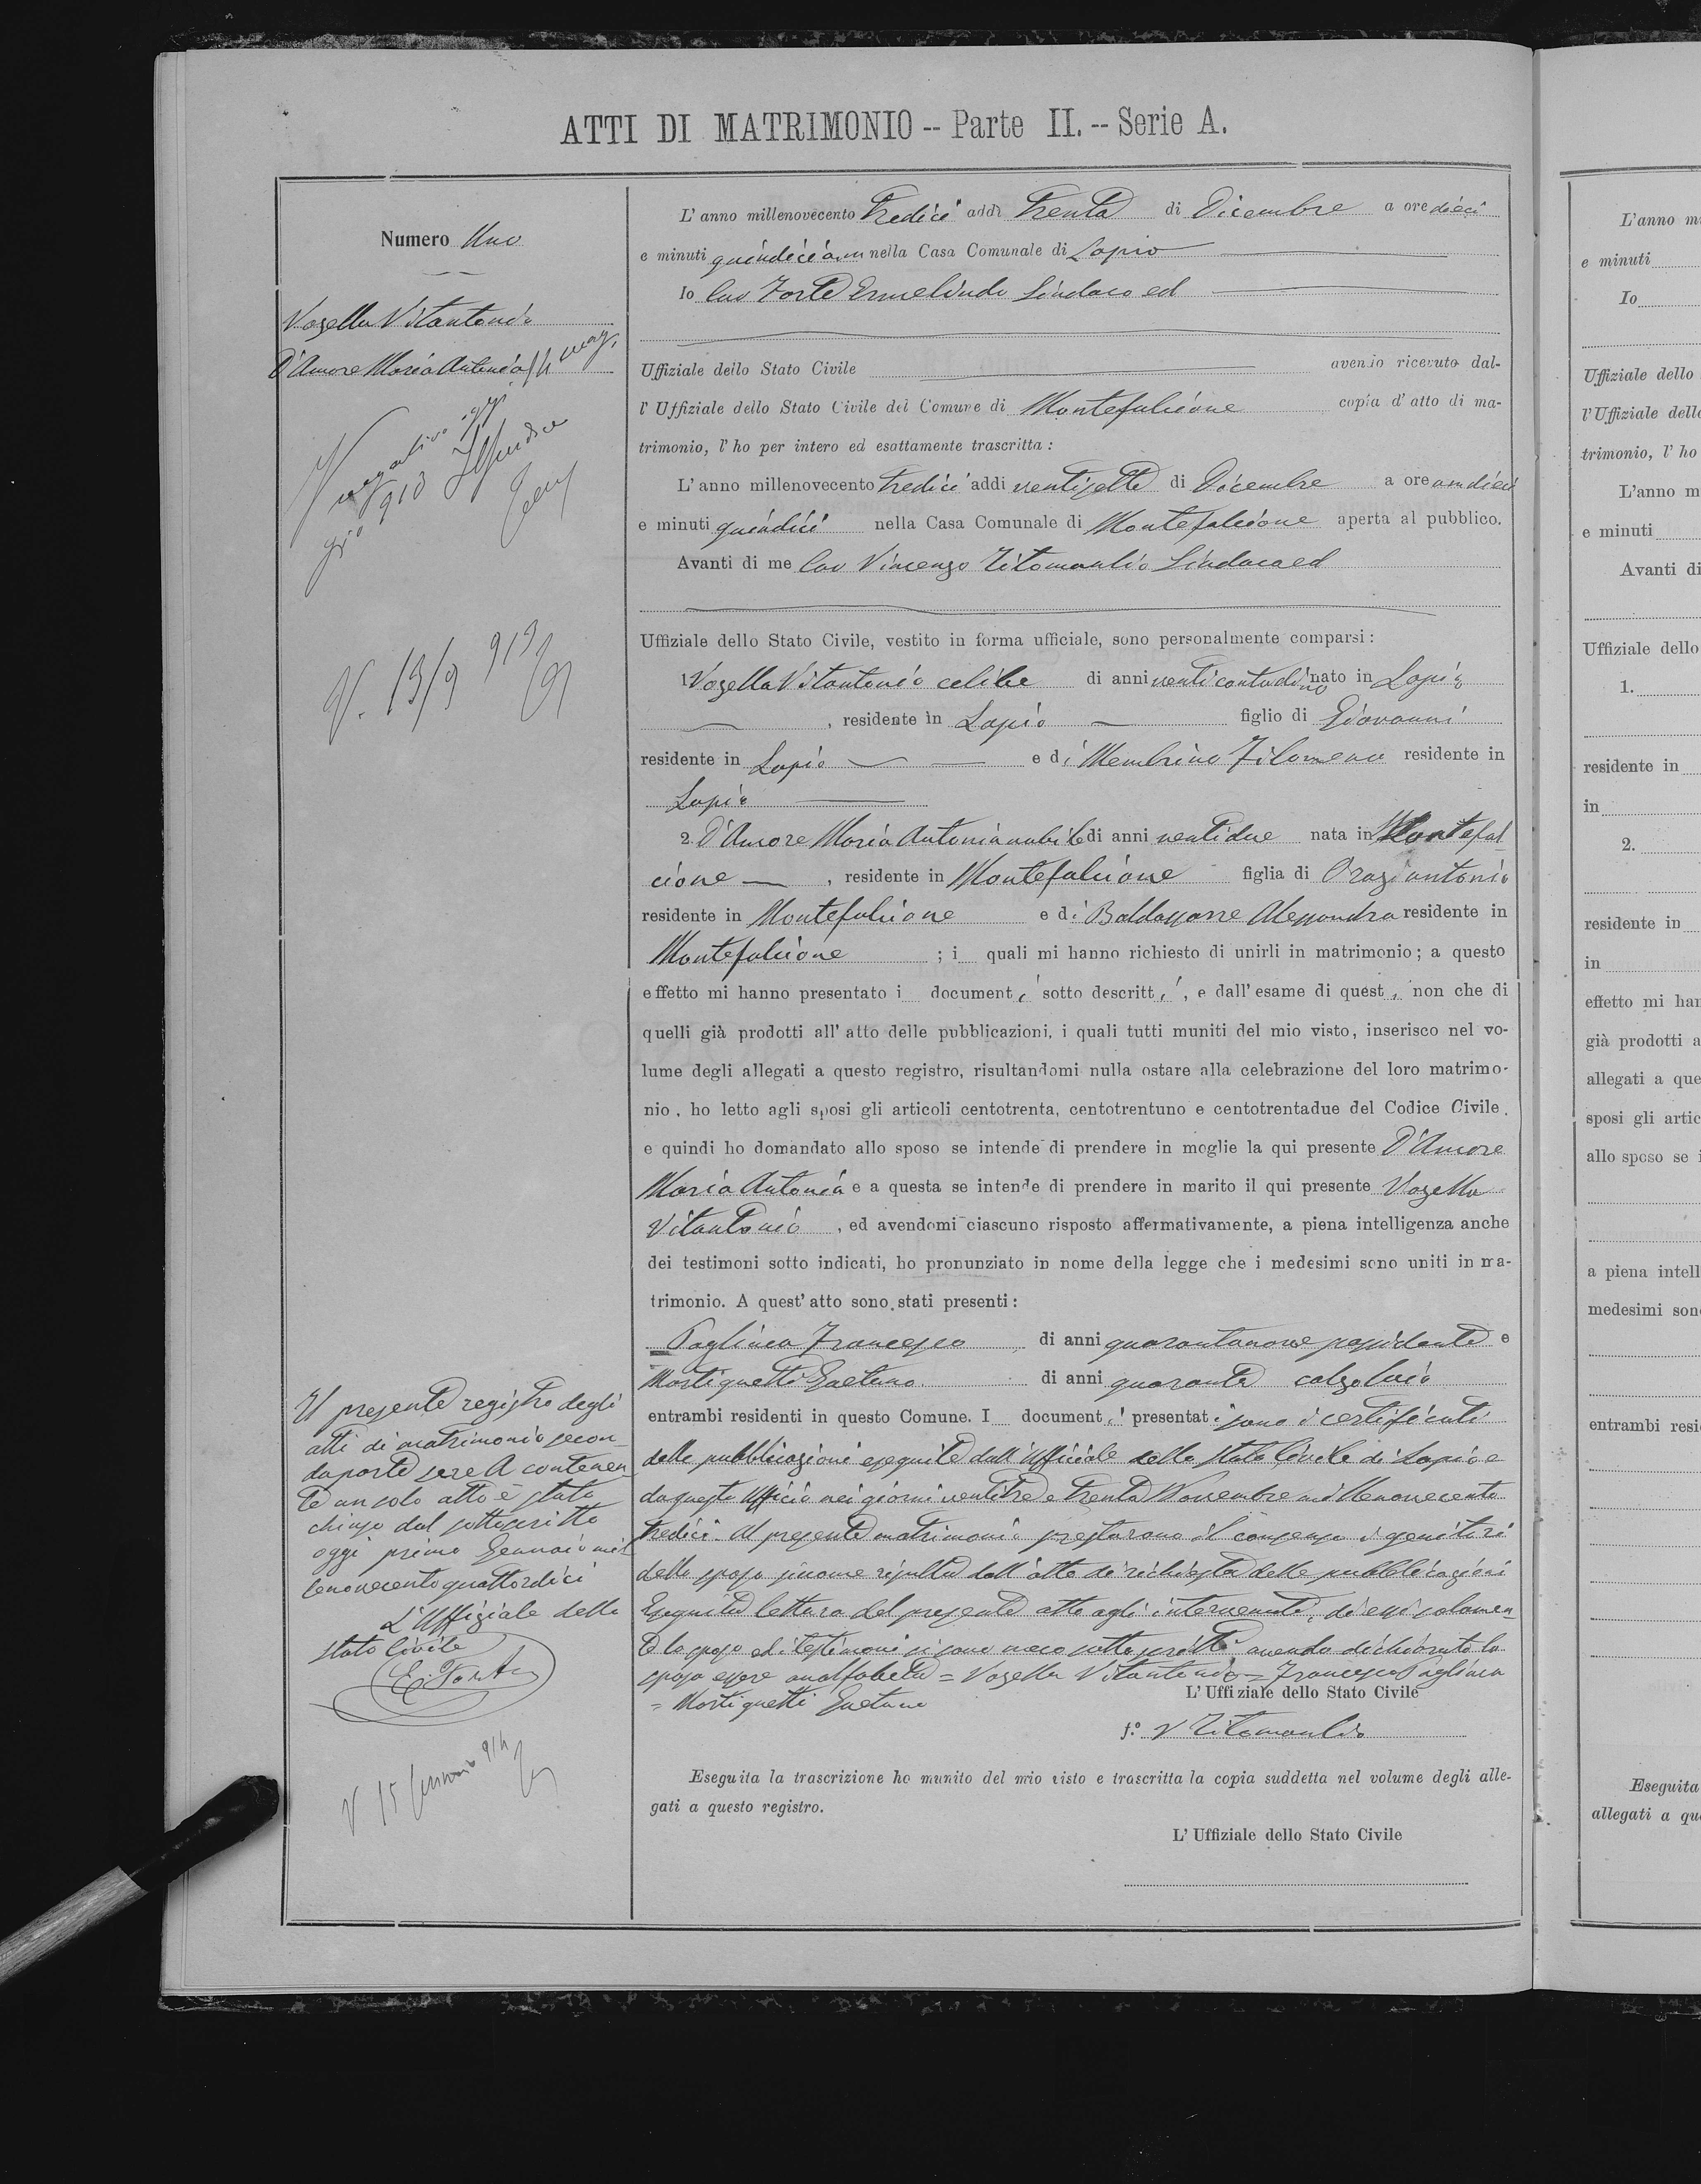 ATTI DI MATRIMONIO -- Parte II. -- Serie A.
Numero Uno
Vozella Vitantonio
D'Amore Maria Antonia
V. 13/9 913
Il presente registro degli
atti di matrimonio secon-
da parte serie A contenen
te un solo atto è stato
chiuso dal sottoscritto
oggi primo Gennaio mil
lenovecentoquattordici
L'Uffiziale dello
Stato Civile
E. Forte
V 15 Gennaio 914
L'anno millenovecento tredici addì trenta di Dicembre a ore dieci
e minuti quindici nella Casa Comunale di Lapio
Io Cav Forte Ermelindo Sindaco ed
Uffiziale dello Stato Civile avendo ricevuto dal-
l'Uffiziale dello Stato Civile del Comune di Montefalcione copia d'atto di ma-
trimonio, l'ho per intero ed esattamente trascritta:
L'anno millenovecento tredici addì ventisette di Dicembre a ore am dieci
e minuti quindici nella Casa Comunale di Montefalcione aperta al pubblico.
Avanti di me Cav Vincenzo Titomanlio Sindaco ed
Uffiziale dello Stato Civile, vestito in forma ufficiale, sono personalmente comparsi:
1. Vozella Vitantonio celibe di anni venti contadino nato in Lapio
, residente in Lapio figlio di Giovanni
residente in Lapio e di Membrino Filomena residente in
Lapio
2. D'Amore Maria Antonia nubile di anni ventidue nata in Montefal
cione , residente in Montefalcione figlia di Oraziantonio
residente in Montefalcione e di Baldassarre Alessandra residente in
Montefalcione ; i quali mi hanno richiesto di unirli in matrimonio; a questo
effetto mi hanno presentato i documenti sotto descritti, e dall'esame di questi non che di
quelli già prodotti all'atto delle pubblicazioni, i quali tutti muniti del mio visto, inserisco nel vo-
lume degli allegati a questo registro, risultandomi nulla ostare alla celebrazione del loro matrimo-
nio, ho letto agli sposi gli articoli centotrenta, centotrentuno e centotrentadue del Codice Civile,
e quindi ho domandato allo sposo se intende di prendere in moglie la qui presente D'Amore
Maria Antonia e a questa se intende di prendere in marito il qui presente Vozella
Vitantonio , ed avendomi ciascuno risposto affermativamente, a piena intelligenza anche
dei testimoni sotto indicati, ho pronunziato in nome della legge che i medesimi sono uniti in ma-
trimonio. A quest'atto sono stati presenti:
Paglinca Francesco di anni quarantanove possidente e
Martignetti Gaetano di anni quaranta calzolaio
entrambi residenti in questo Comune. I documenti presentati sono i certificati
delle pubblicazioni eseguite dall'Ufficiale dello Stato Civile di Lapio e
da questo Ufficio nei giorni ventitre e trenta Novembre millenovecento
tredici. Al presente matrimonio prestarono il consenso i genitori
dello sposo siccome risulta dall'atto di richiesta delle pubblicazioni
Eseguita lettura del presente atto agli intervenuti, di essi solamen
te lo sposo ed i testimoni si sono meco sottoscritti avendo dichiarato la
sposa essere analfabeta = Vozella Vitantonio = Francesco Paglinca
= Martignetti Gaetano
L'Uffiziale dello Stato Civile
f.° V Titomanlio
Eseguita la trascrizione ho munito del mio visto e trascritta la copia suddetta nel volume degli alle-
gati a questo registro.
L'Uffiziale dello Stato Civile
L'anno m
e minuti
Io
Uffiziale dello
l'Uffiziale dello
trimonio, l'ho
L'anno m
e minuti
Avanti di
Uffiziale dello
1.
residente in
in
2.
residente in
in
effetto mi han
già prodotti a
allegati a que
sposi gli artic
allo sposo se i
a piena intell
medesimi sono
entrambi resi
Eseguita
allegati a qu